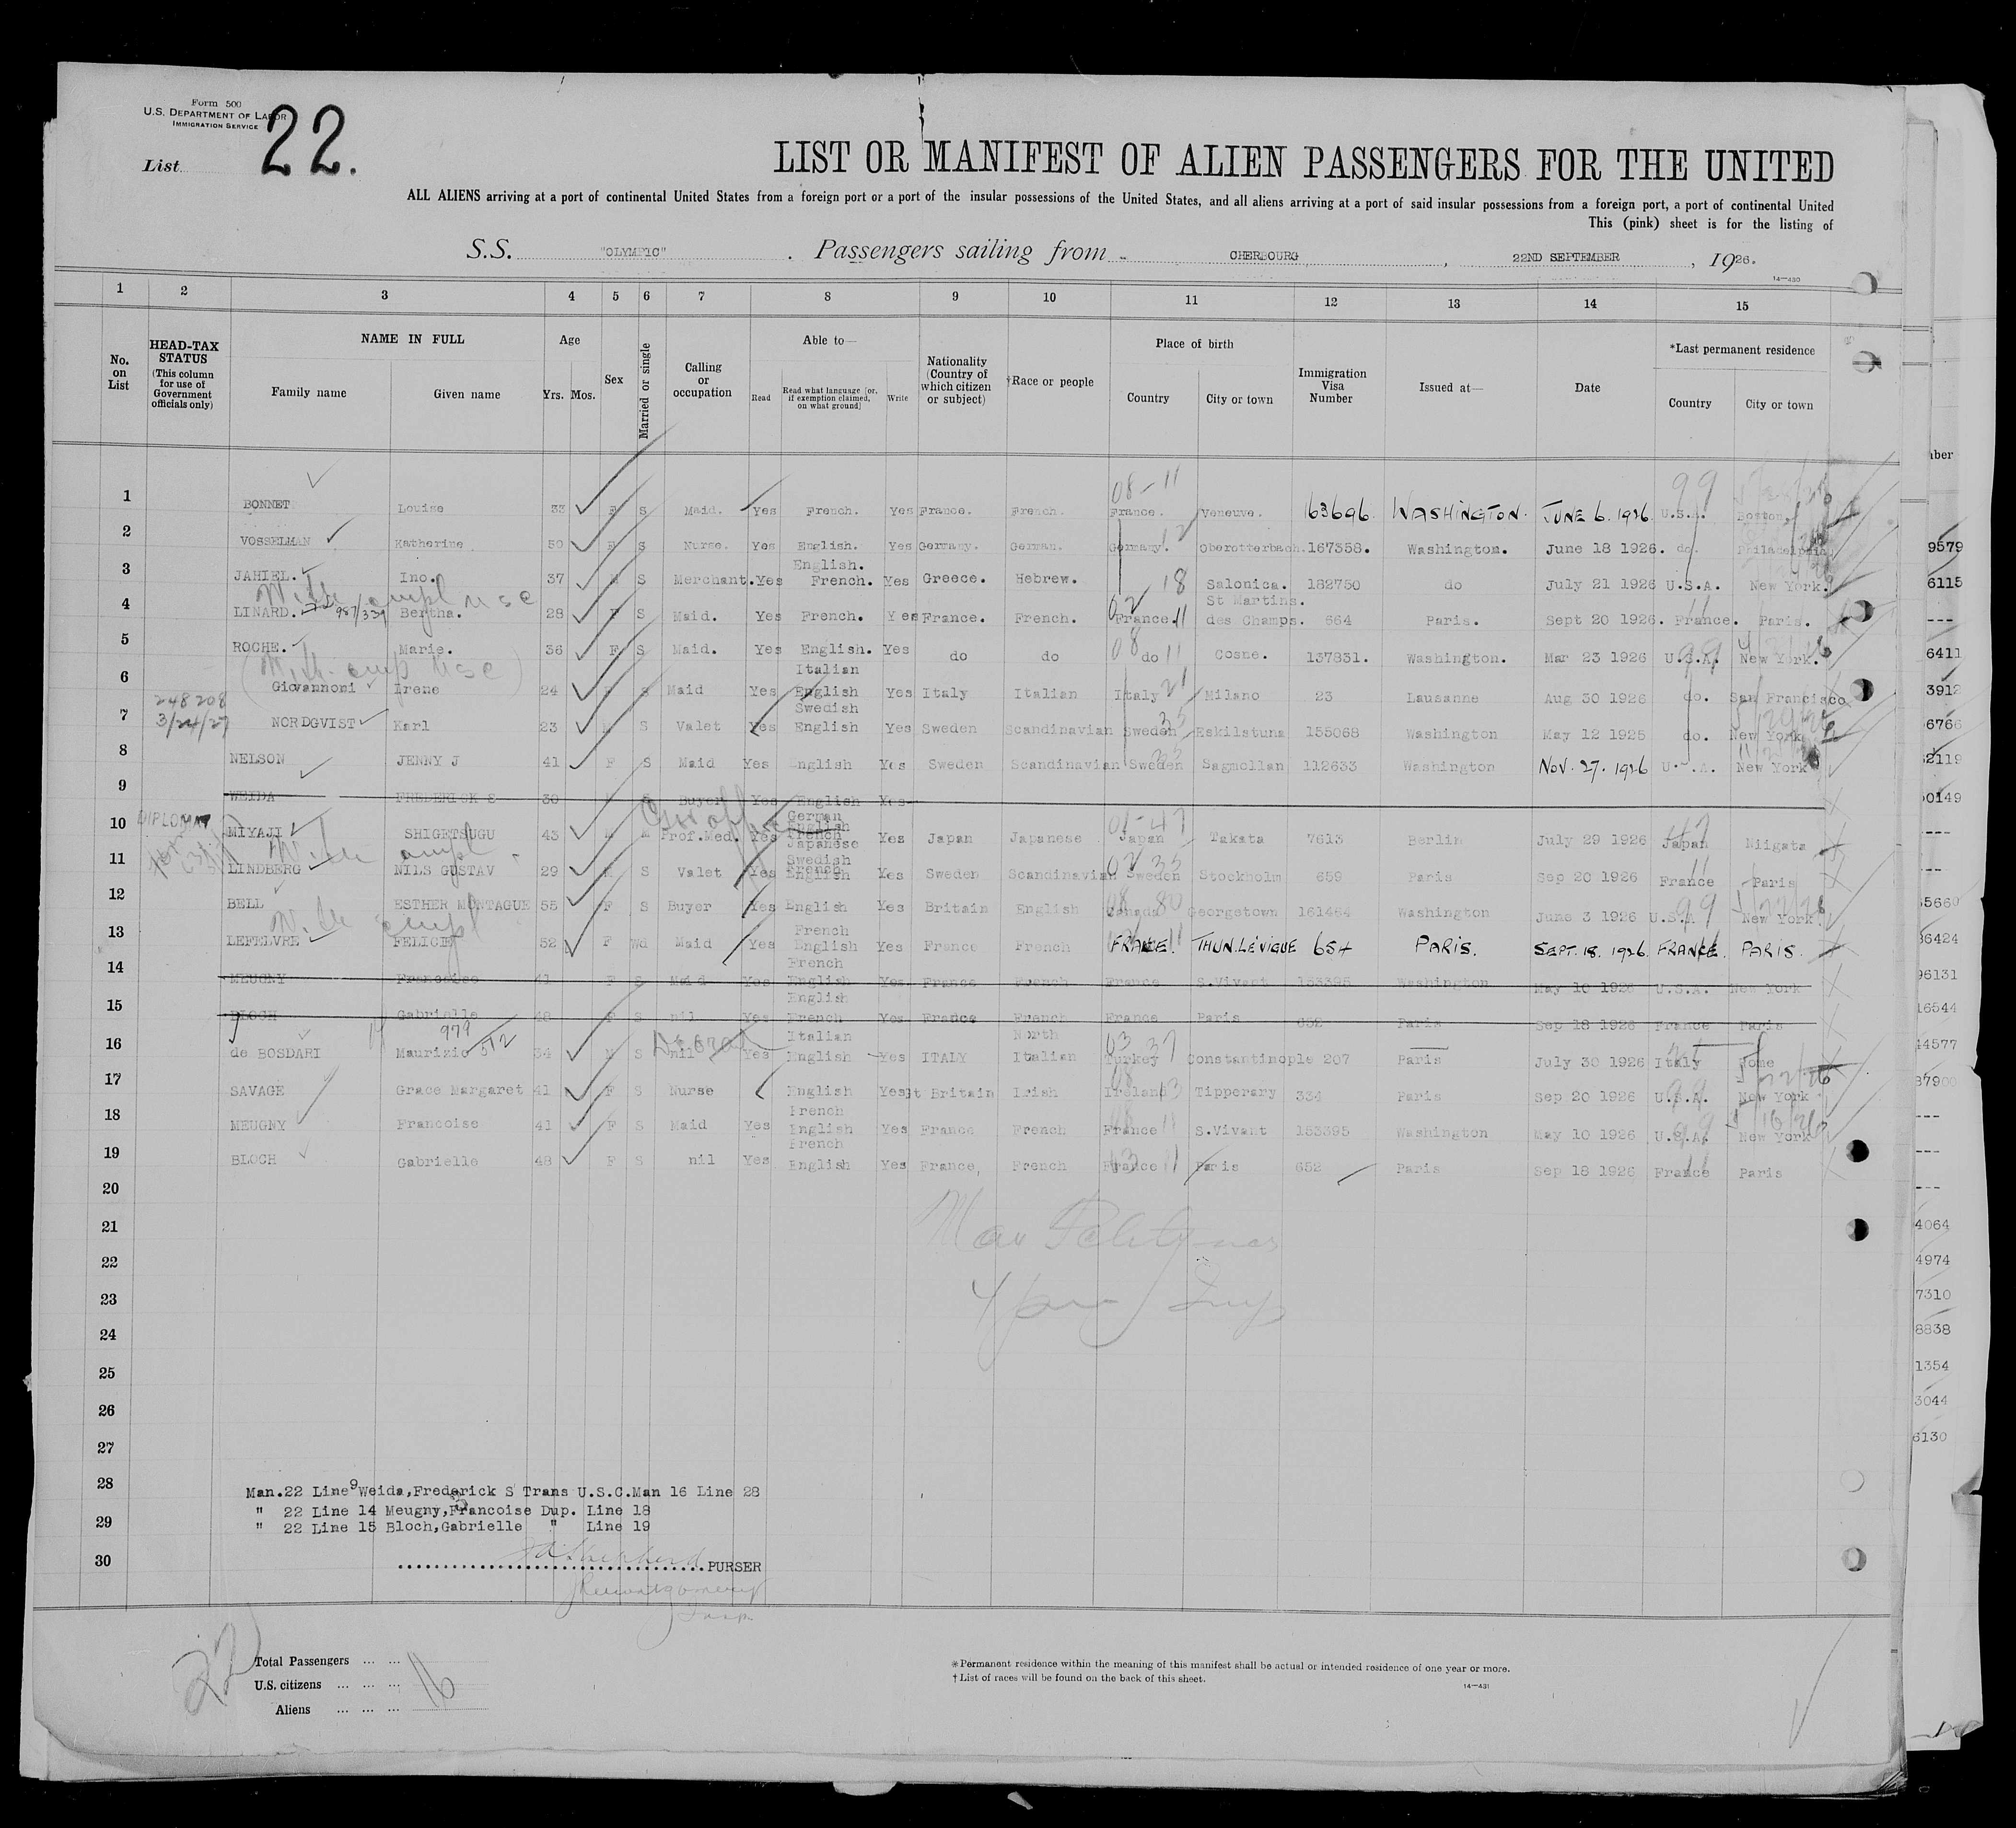 Form 500
U.S. DEPARTMENT OF LABOR
IMMIGRATION SERVICE
List 22.
LIST OR MANIFEST OF ALIEN PASSENGERS FOR THE UNITED
ALL ALIENS arriving at a port of continental United States from a foreign port or a port of the insular possessions of the United States, and all aliens arriving at a port of said insular possessions from a foreign port, a port of continental United
This (pink) sheet is for the listing of
S.S. "OLYMPIC" . Passengers sailing from CHERBOURG , 22ND SEPTEMBER , 1926.
14—430
1 2 3 4 5 6 7 8 9 10 11 12 13 14 15
No. on List
HEAD-TAX STATUS (This column for use of Government officials only)
NAME IN FULL
Family name Given name
Age
Yrs. Mos.
Sex
Married or single
Calling or occupation
Able to—
Read Read what language [or, if exemption claimed, on what ground] Write
Nationality (Country of which citizen or subject)
†Race or people
Place of birth
Country City or town
Immigration Visa Number
Issued at—
Date
*Last permanent residence
Country City or town
08-11 99
1 BONNET Louise 33 F S Maid. Yes French. Yes France. French. France. Veneuve. 163696 WASHINGTON. JUNE 6. 1926. U.S.A. Boston,
2 VOSSELMAN Katherine 50 F S Nurse. Yes English. Yes Germany. German. Germany. Oberotterbach. 167358. Washington. June 18 1926. do. Philadelphia
3 JAHIEL. Ino. 37 M S Merchant. Yes English. French. Yes Greece. Hebrew. 18 Salonica. 182750 do July 21 1926 U.S.A. New York.
With empl USC
4 LINARD. 987/339 Bertha. 28 F S Maid. Yes French. Yes France. French. France. 11 St Martins. des Champs. 664 Paris. Sept 20 1926. France. Paris.
5 ROCHE. Marie. 36 F S Maid. Yes English. Yes do do do 11 Cosne. 137831. Washington. Mar 23 1926 U.S.A. New York.
(With emp USC)
6 Giovannoni Irene 24 F S Maid Yes Italian English Yes Italy Italian Italy 21 Milano 23 Lausanne Aug 30 1926 do. San Francisco
248208
3/24/27
7 NORDGVIST Karl 23 M S Valet Yes Swedish English Yes Sweden Scandinavian Sweden 35 Eskilstuna 155068 Washington May 12 1925 do. New York
8 NELSON JENNY J 41 F S Maid Yes English Yes Sweden Scandinavian Sweden Sagmollan 112633 Washington NOV. 27. 1926 U.S.A. New York
9 WEIDA FREDERICK S 30 M S Buyer Yes English Yes
DIPLOMAT
Gov off
10 MIYAJI SHIGETSUGU 43 M M Prof.Med. Yes German English French Japanese Yes Japan Japanese Japan Takata 7613 Berlin July 29 1926 Japan Niigata
With empl
11 LINDBERG NILS GUSTAV 29 M S Valet Yes Swedish French English Yes Sweden Scandinavian Sweden Stockholm 659 Paris Sep 20 1926 France Paris
12 BELL ESTHER MONTAGUE 55 F S Buyer Yes English Yes Britain English Canada Georgetown 161464 Washington June 3 1926 U.S.A New York
With empl
13 LEFELVRE FELICIE 52 F Wd Maid Yes French English Yes France French FRANCE. THUN.LÉVIGUE 654 PARIS. SEPT. 18. 1926. FRANCE. PARIS.
14 MEUGNY Francoise 41 F S Maid Yes French English Yes France French France S.Vivant 153395 Washington May 10 1926 U.S.A. New York
15 BLOCH Gabrielle 48 F S nil Yes English French Yes France French France Paris 652 Paris Sep 18 1926 France Paris
979
512
16 de BOSDARI Maurizio 34 M S nil Yes Italian English Yes ITALY North Italian Turkey Constantinople 207 Paris July 30 1926 Italy Rome
17 SAVAGE Grace Margaret 41 F S Nurse English Yes Gt Britain Irish Ireland Tipperary 334 Paris Sep 20 1926 U.S.A. New York
18 MEUGNY Francoise 41 F S Maid Yes French English Yes France French France S.Vivant 153395 Washington May 10 1926 U.S.A. New York
19 BLOCH Gabrielle 48 F S nil Yes French English Yes France, French France Paris 652 Paris Sep 18 1926 France Paris
20
21
22
23
24
25
26
27
28
29
30
Man.22 Line 9 Weida,Frederick S Trans U.S.C.Man 16 Line 28
" 22 Line 14 Meugny,Francoise Dup. Line 18
" 22 Line 15 Bloch,Gabrielle " Line 19
PURSER
22
Total Passengers
U.S. citizens 16
Aliens
*Permanent residence within the meaning of this manifest shall be actual or intended residence of one year or more.
†List of races will be found on the back of this sheet.
14—431
9579
6115
---
6411
3912
6766
2119
0149
---
---
5660
6424
96131
16544
44577
37900
---
---
---
4064
4974
7310
8838
1354
3044
6130